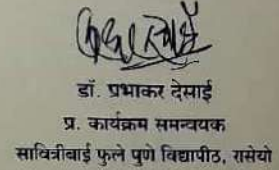 डॉ. प्रभाकर देसाई
प्र. कार्यक्रम समन्वयक
सावित्रीबाई फुले पुणे विद्यापीठ, रासेयो